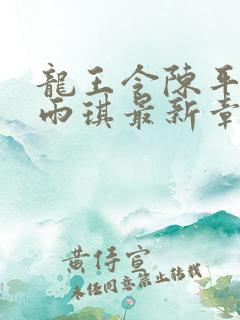 龍王令陳平
雨琪最新章
黄侍宣
未经同意禁止转载